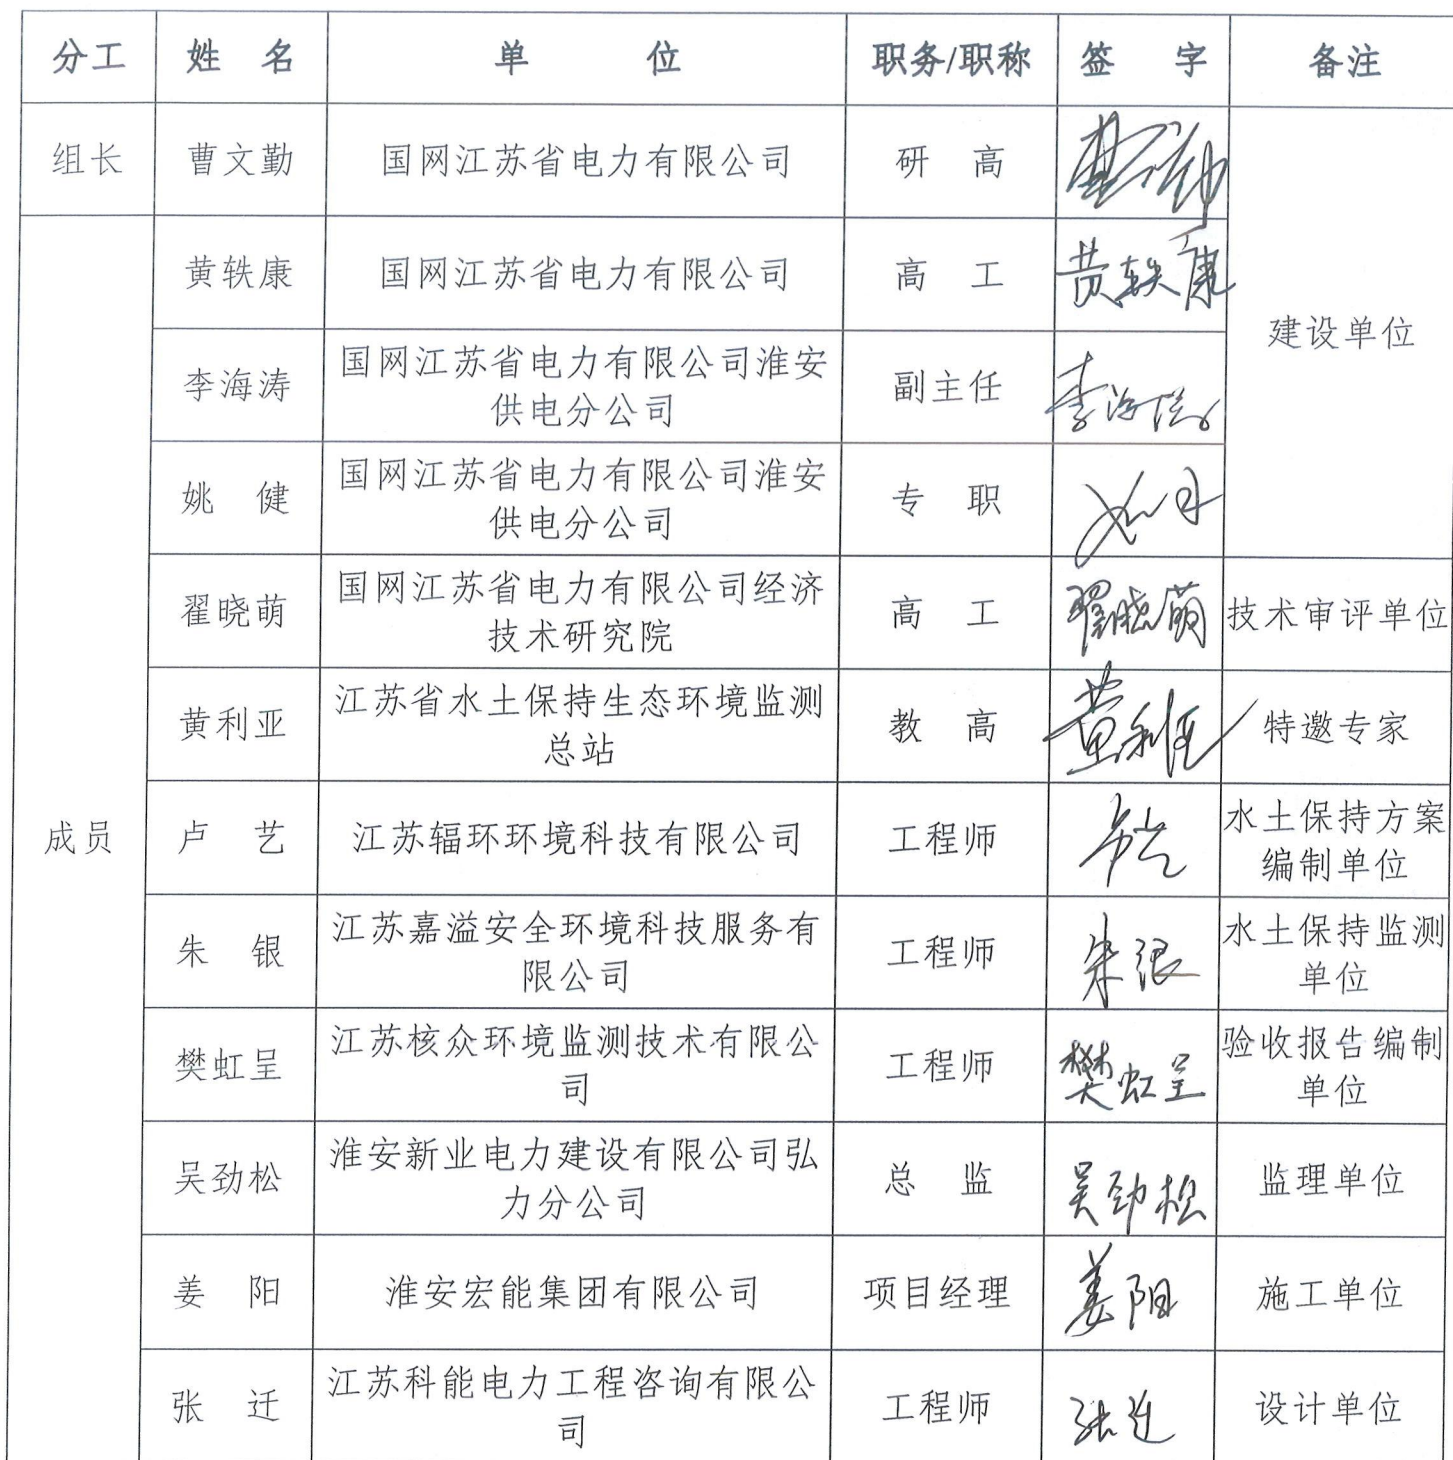 分工 姓 名 单 位 职务/职称 签 字 备注
组长 曹文勤 国网江苏省电力有限公司 研 高
黄轶康 国网江苏省电力有限公司 高 工 黄轶康
建设单位
李海涛 国网江苏省电力有限公司淮安
供电分公司 副主任 李海涛
姚 健 国网江苏省电力有限公司淮安
供电分公司 专 职
翟晓萌 国网江苏省电力有限公司经济
技术研究院 高 工 翟晓萌 技术审评单位
黄利亚 江苏省水土保持生态环境监测
总站 教 高 黄利亚 特邀专家
成员 卢 艺 江苏辐环环境科技有限公司 工程师 水土保持方案
编制单位
朱 银 江苏嘉溢安全环境科技服务有
限公司 工程师 朱银 水土保持监测
单位
樊虹呈 江苏核众环境监测技术有限公
司 工程师 樊虹呈 验收报告编制
单位
吴劲松 淮安新业电力建设有限公司弘
力分公司 总 监 吴劲松 监理单位
姜 阳 淮安宏能集团有限公司 项目经理 姜阳 施工单位
张 迁 江苏科能电力工程咨询有限公
司 工程师 张迁 设计单位